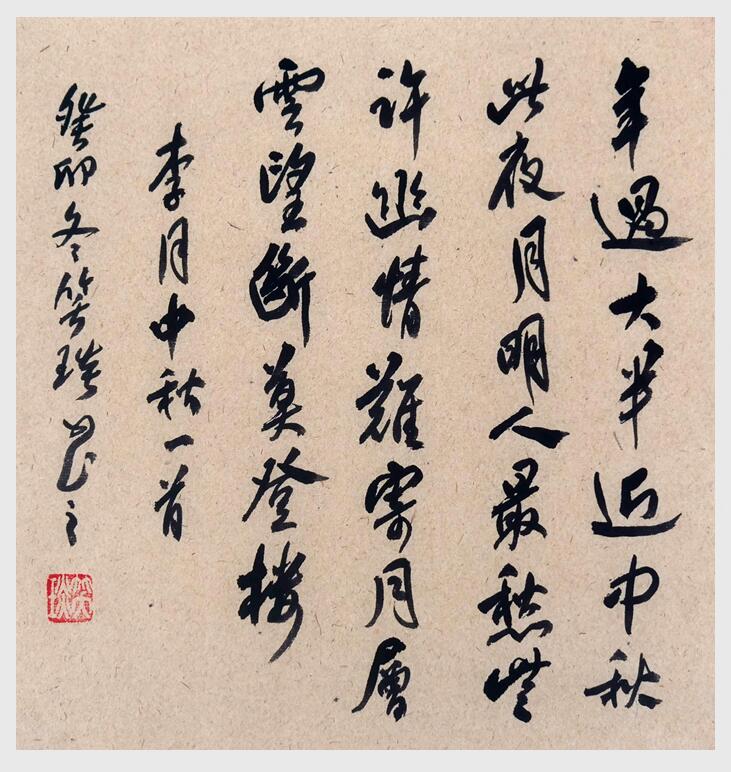 年過大半近中秋
此夜月明人最愁些
許幽情難寄月層
雲望斷莫登樓
李月中秋一首
癸卯冬笑琰書之
笑琰